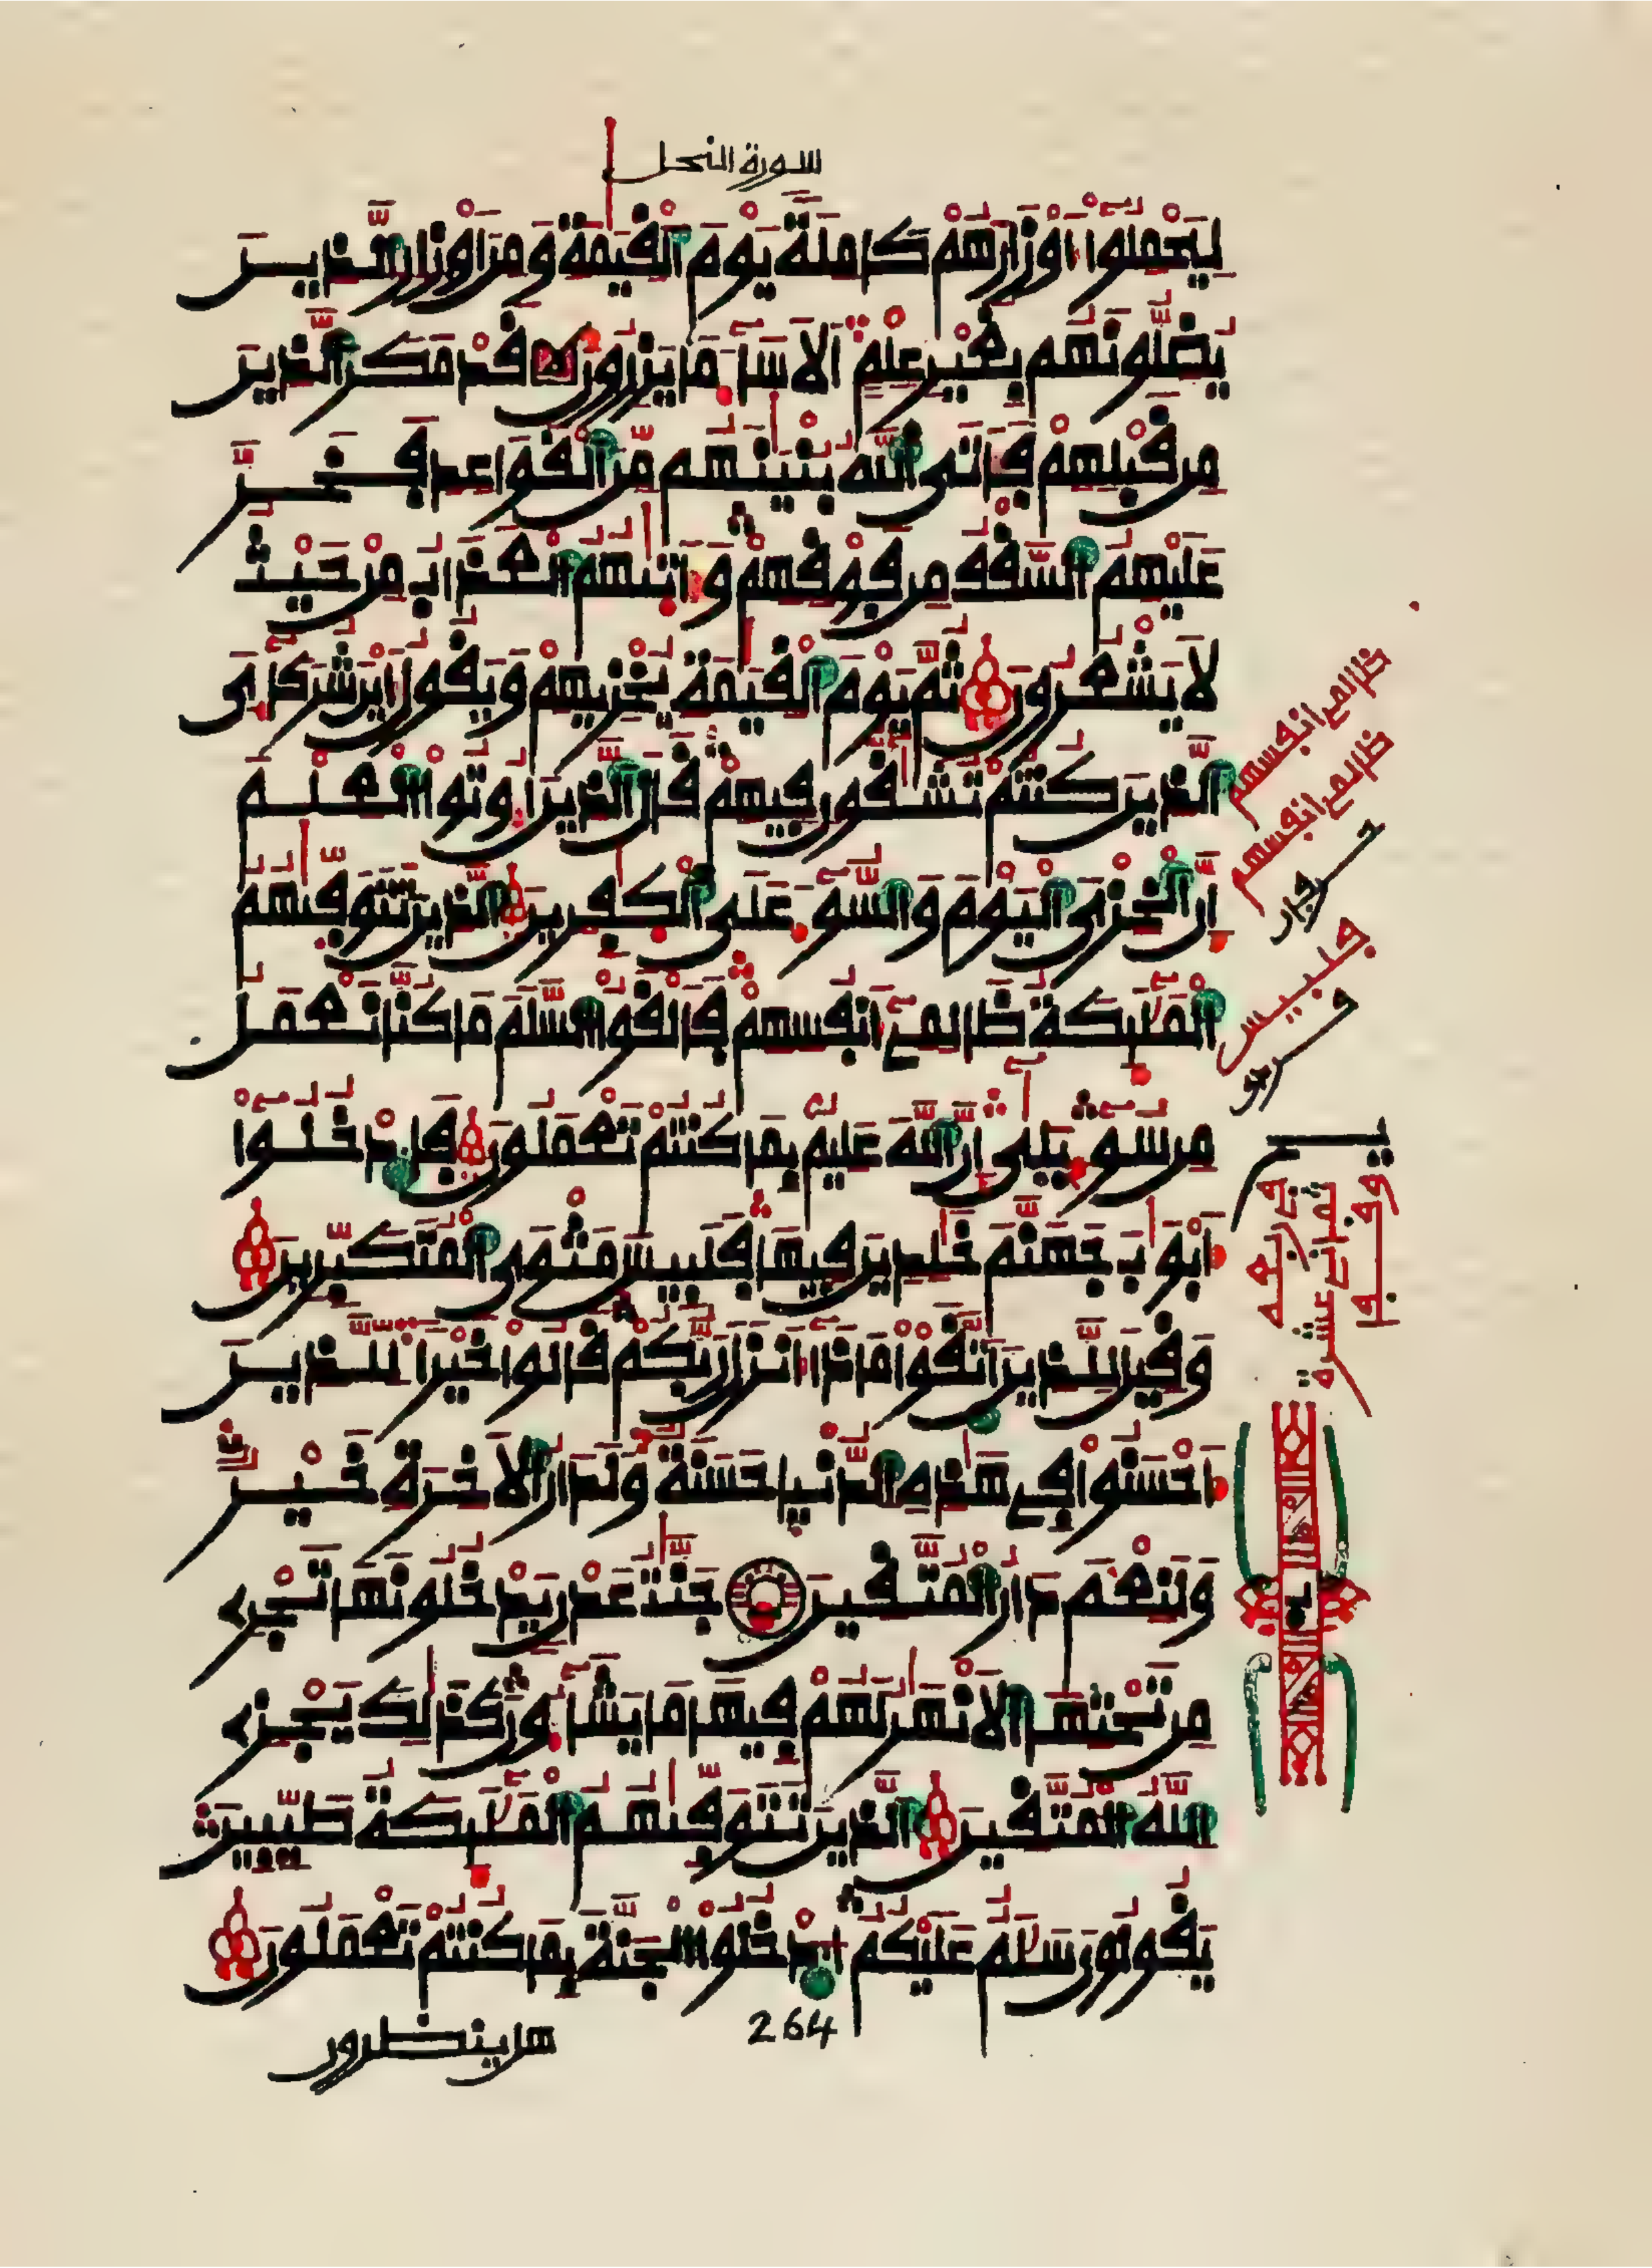 سورة النحل
لِيَحْمِلُوا أَوْزَارَهُمْ كَامِلَةً يَوْمَ الْقِيَمَةِ وَمِنْ أَوْزَارِ الَّذِينَ
يُضِلُّونَهُم بِغَيْرِ عِلْمٍ أَلَا سَاءَ مَا يَزِرُونَ قَدْ مَكَرَ الَّذِينَ
مِن قَبْلِهِمْ فَأَتَى اللَّهُ بُنْيَنَهُم مِّنَ الْقَوَاعِدِ فَخَرَّ
عَلَيْهِمُ السَّقْفُ مِن فَوْقِهِمْ وَأَتَىهُمُ الْعَذَابُ مِنْ حَيْثُ
لَا يَشْعُرُونَ ثُمَّ يَوْمَ الْقِيَمَةِ يُخْزِيهِمْ وَيَقُولُ أَيْنَ شُرَكَاءِيَ
الَّذِينَ كُنتُمْ تُشَقُّونِ فِيهِمْ قَالَ الَّذِينَ أُوتُوا الْعِلْمَ
إِنَّ الْخِزْيَ الْيَوْمَ وَالسُّوءَ عَلَى الْكَفِرِينَ الَّذِينَ تَتَوَفَّىهُمُ
الْمَلَئِكَةُ ظَالِمِي أَنفُسِهِمْ فَأَلْقَوُا السَّلَمَ مَا كُنَّا نَعْمَلُ
مِن سُوءٍ بَلَى إِنَّ اللَّهَ عَلِيمٌ بِمَا كُنتُمْ تَعْمَلُونَ فَادْخُلُوا
أَبْوَابَ جَهَنَّمَ خَلِدِينَ فِيهَا فَلَبِيسَ مَثْوَى الْمُتَكَبِّرِينَ
وَقِيلَ لِلَّذِينَ اتَّقَوْا مَاذَا أَنزَلَ رَبُّكُمْ قَالُوا خَيْرًا لِّلَّذِينَ
أَحْسَنُوا فِي هَذِهِ الدُّنْيَا حَسَنَةٌ وَلَدَارُ الْآخِرَةِ خَيْرٌ
وَلَنِعْمَ دَارُ الْمُتَّقِينَ جَنَّتُ عَدْنٍ يَدْخُلُونَهَا تَجْرِي
مِن تَحْتِهَا الْأَنْهَرُ لَهُمْ فِيهَا مَا يَشَاءُونَ كَذَلِكَ يَجْزِي
اللَّهُ الْمُتَّقِينَ الَّذِينَ تَتَوَفَّىهُمُ الْمَلَئِكَةُ طَيِّبِينَ
يَقُولُونَ سَلَمٌ عَلَيْكُمُ ادْخُلُوا الْجَنَّةَ بِمَا كُنتُمْ تَعْمَلُونَ
264
هل ينظرون
ظالمي انفسهم
ظالمي انفسهم
فلبيس